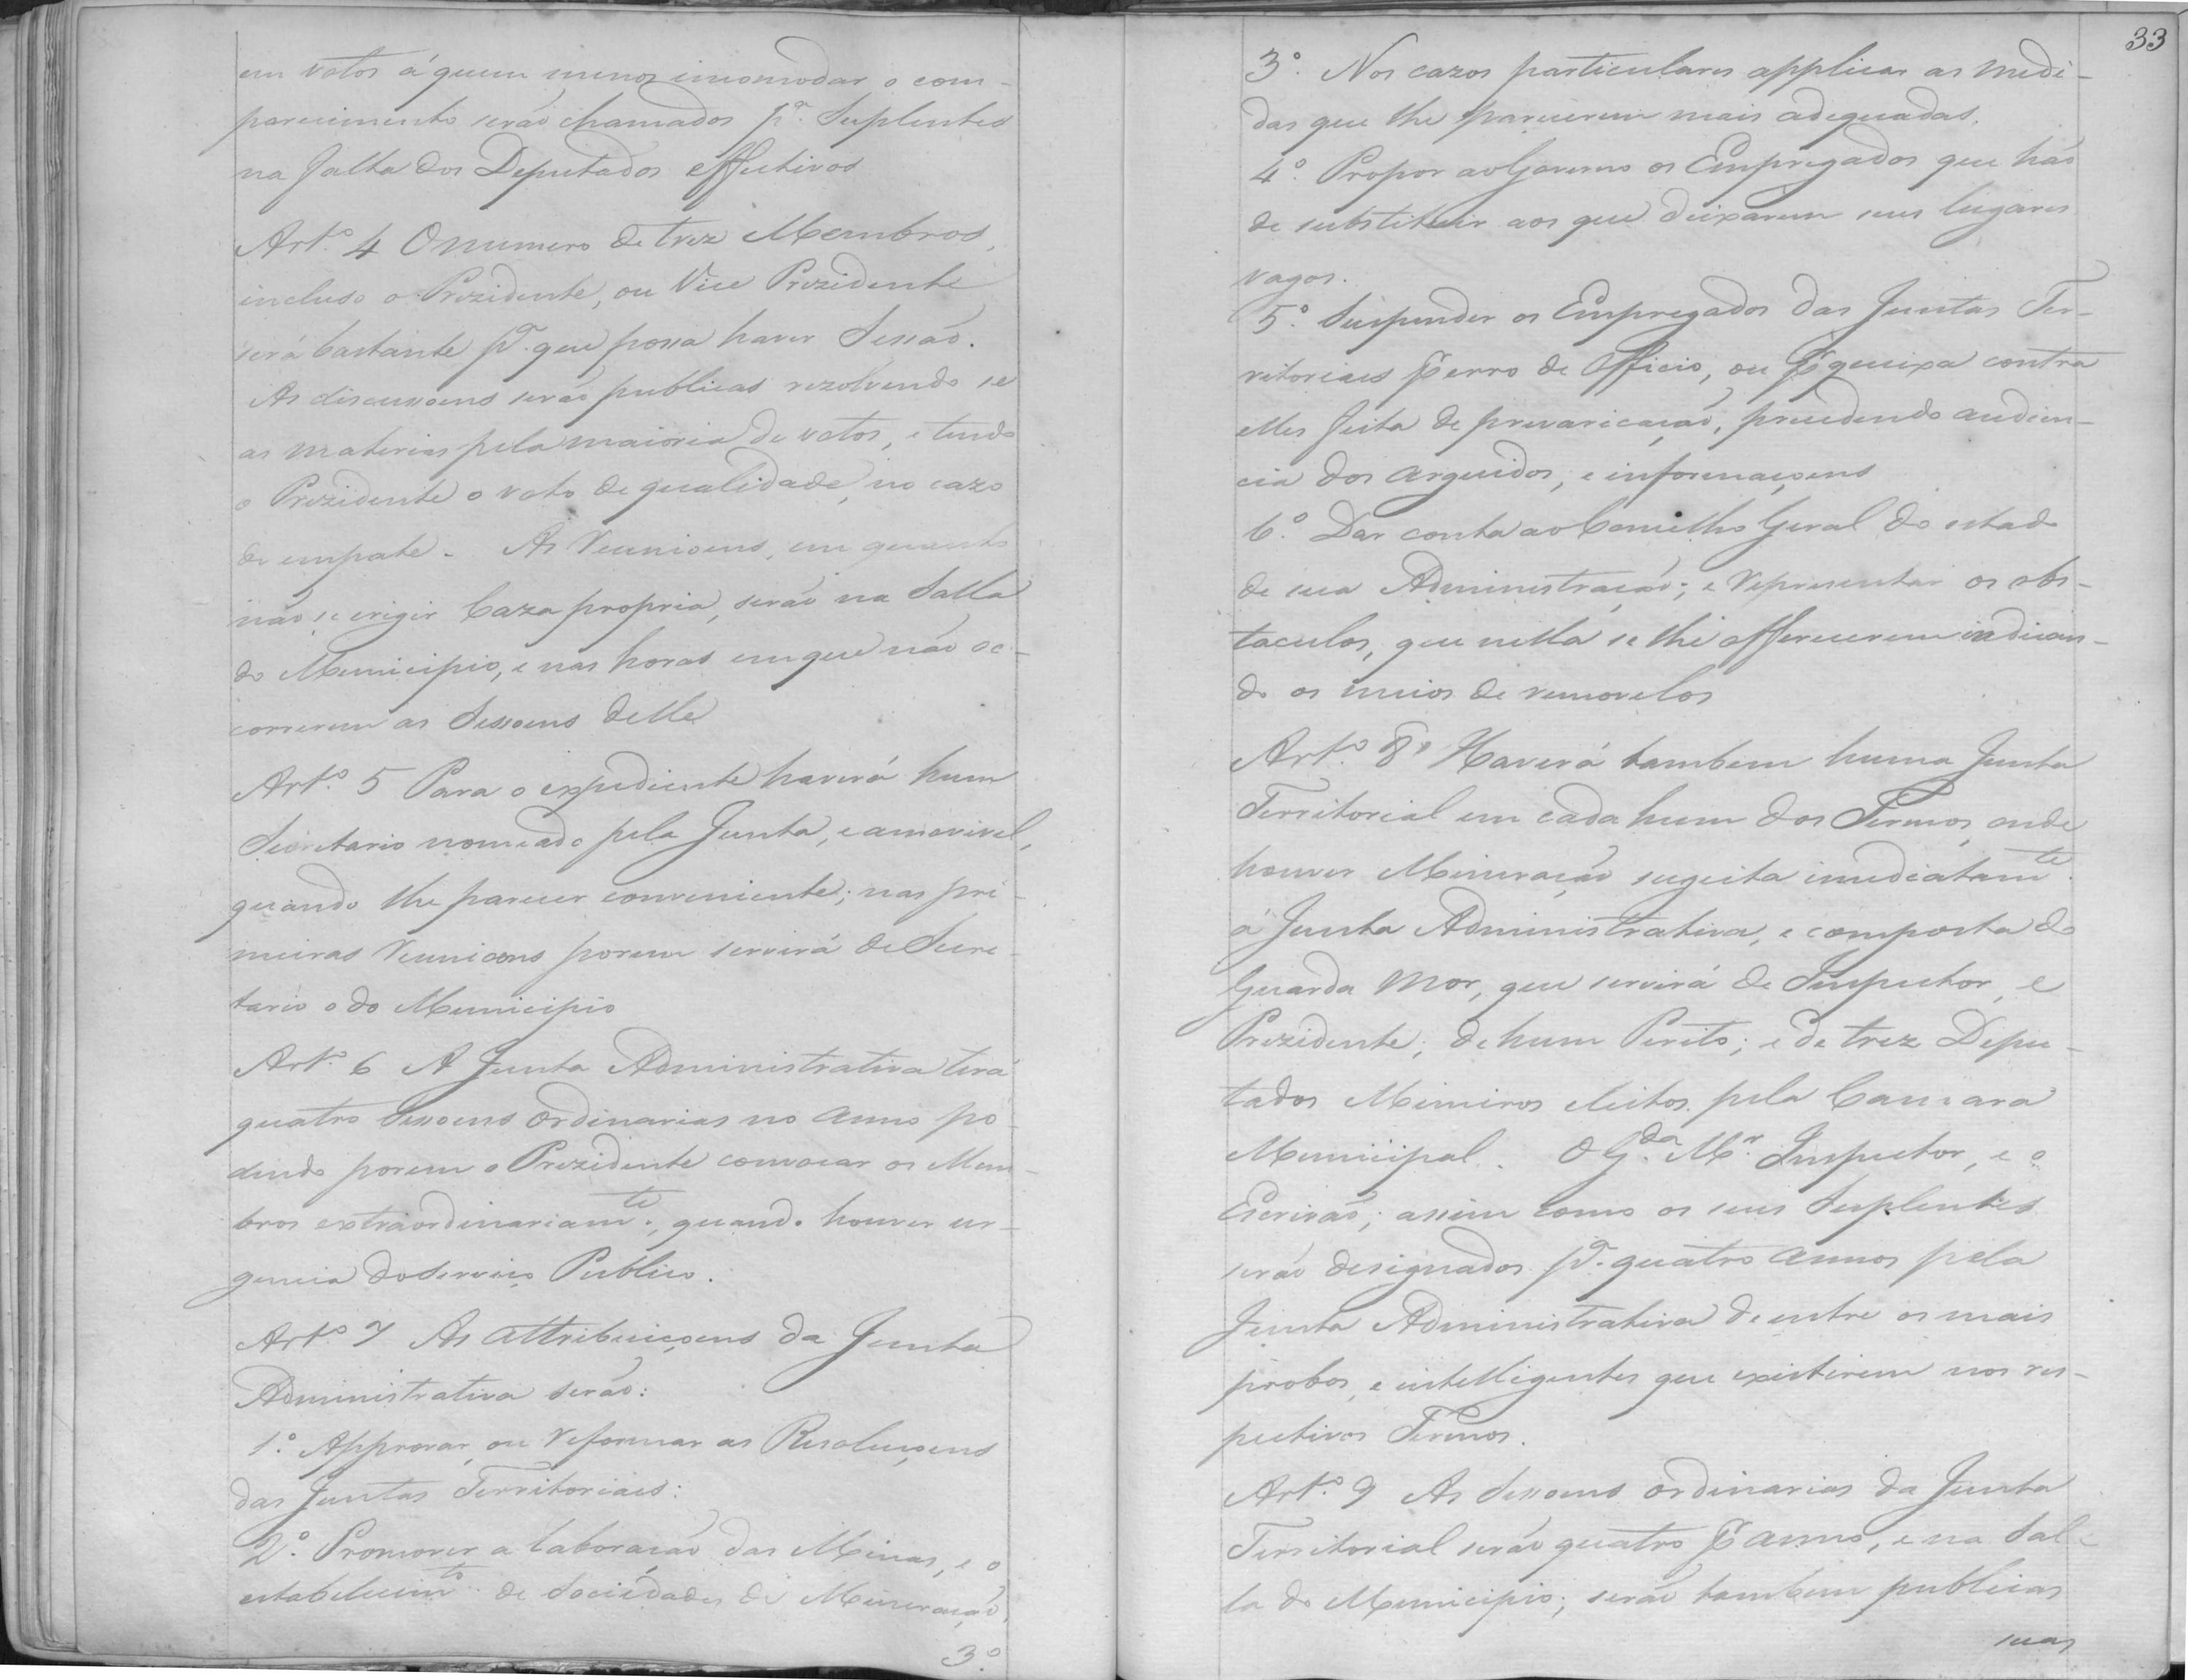 em votos á quem menos incomodar o com-
parecimento serão chamados p.ª Suplentes
na falta dos Deputados effectivos
Art.º 4 O numero de trez Membros,
incluso o Prezidente, ou Vice Prezidente
será bastante p.ª que possa haver Sessão.
As discussoens serão publicas rezolvendo se
as materias pela maioria de votos, e tendo
o Prezidente o voto de qualidade, no cazo
de empate. As Reunioens, em quanto
não se erigir Caza propria, serão na Salla
do Municipio, e nas horas em que não oc-
correrem as Sessoens delle
Art.º 5 Para o expediente haverá hum
Secretario nomeado pela Junta, e amovivel,
quando lhe parecer conveniente; nas pri-
meiras Reunioens porem servirá de Secre-
tario o do Municipio
Art.º 6 A Junta Administrativa terá
quatro Sessoens Ordinarias no anno po-
dendo porem o Prezidente convocar os Mem-
bros extraordinariam.te, quando houver ur-
gencia do Serviço Publico.
Art.º 7 As attribuiçoens da Junta
Administrativa serão:
1.º Approvar, ou reformar as Resoluçoens
das Juntas Territoriaes:
2.º Promover a laboração das Minas, e o
estabelecim.to de Sociedades de Mineração,
3.º
33
3.º Nos cazos particulares applicar as medi-
das que lhe parecerem mais adequadas.
4.º Propor ao Governo os Empregados que hão
de substituir aos que deixarem seus lugares
vagos.
5.º Suspender os Empregados das Juntas Ter-
ritoriaes p.r erro de Officio, ou p.r queixa contra
elles feita de prevaricação, precedendo audien-
cia dos arguidos, e informaçoens
6.º Dar conta ao Conselho Geral do estado
de sua Administração; e representar os obs-
taculos, que nella se lhe offerecerem indican-
do os meios de removelos
Art.º 8º Haverá tambem huma Junta
Territorial em cada hum dos Termos, onde
houver Mineração sugeita imediatam.te
á Junta Administrativa, e composta do
Guarda Mor, que servirá de Inspector, e
Prezidente; de hum Perito; e de trez Depu-
tados Mineiros eleitos pela Camara
Municipal. O G.da M.r Inspector, e o
Escrivão; assim como os seus Suplentes
serão designados p.ª quatro annos pela
Junta Administrativa d'entre os mais
probos, e intelligentes que existirem nos res-
pectivos Termos.
Art.º 9 As Sessoens ordinarias da Junta
Territorial serão quatro p.r anno, e na Sal-
la do Municipio; serão tambem publicas
suas